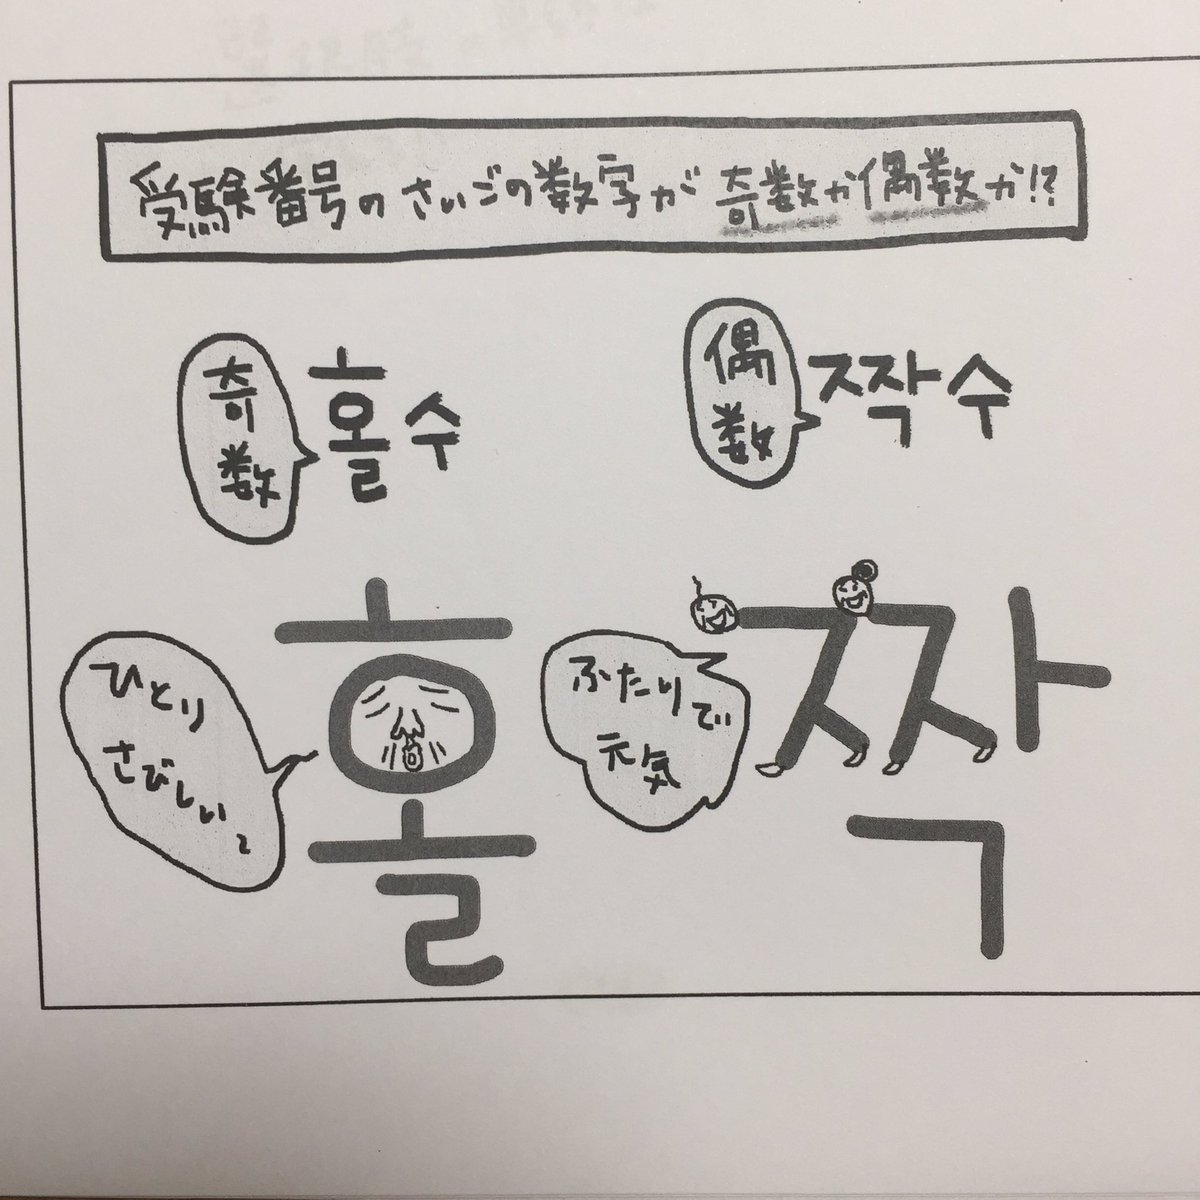 受験番号のさいごの数字が奇数か偶数か!?
奇数
홀수
偶数
짝수
ひとり
さびしい〜
홀
ふたりで
元気
짝